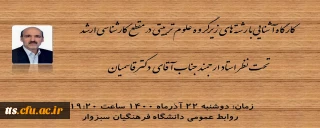 کارگاه آشنایی با رشته‌های زیرگروه علوم تربیتی در مقطع کارشناسی ارشد
تحت نظر استاد ارجمند جناب آقای دکتر قاسمیان
زمان: دوشنبه ۲۲ آذرماه ۱۴۰۰ ساعت ۱۹:۲۰
روابط عمومی دانشگاه فرهنگیان سبزوار
tts.cfu.ac.ir